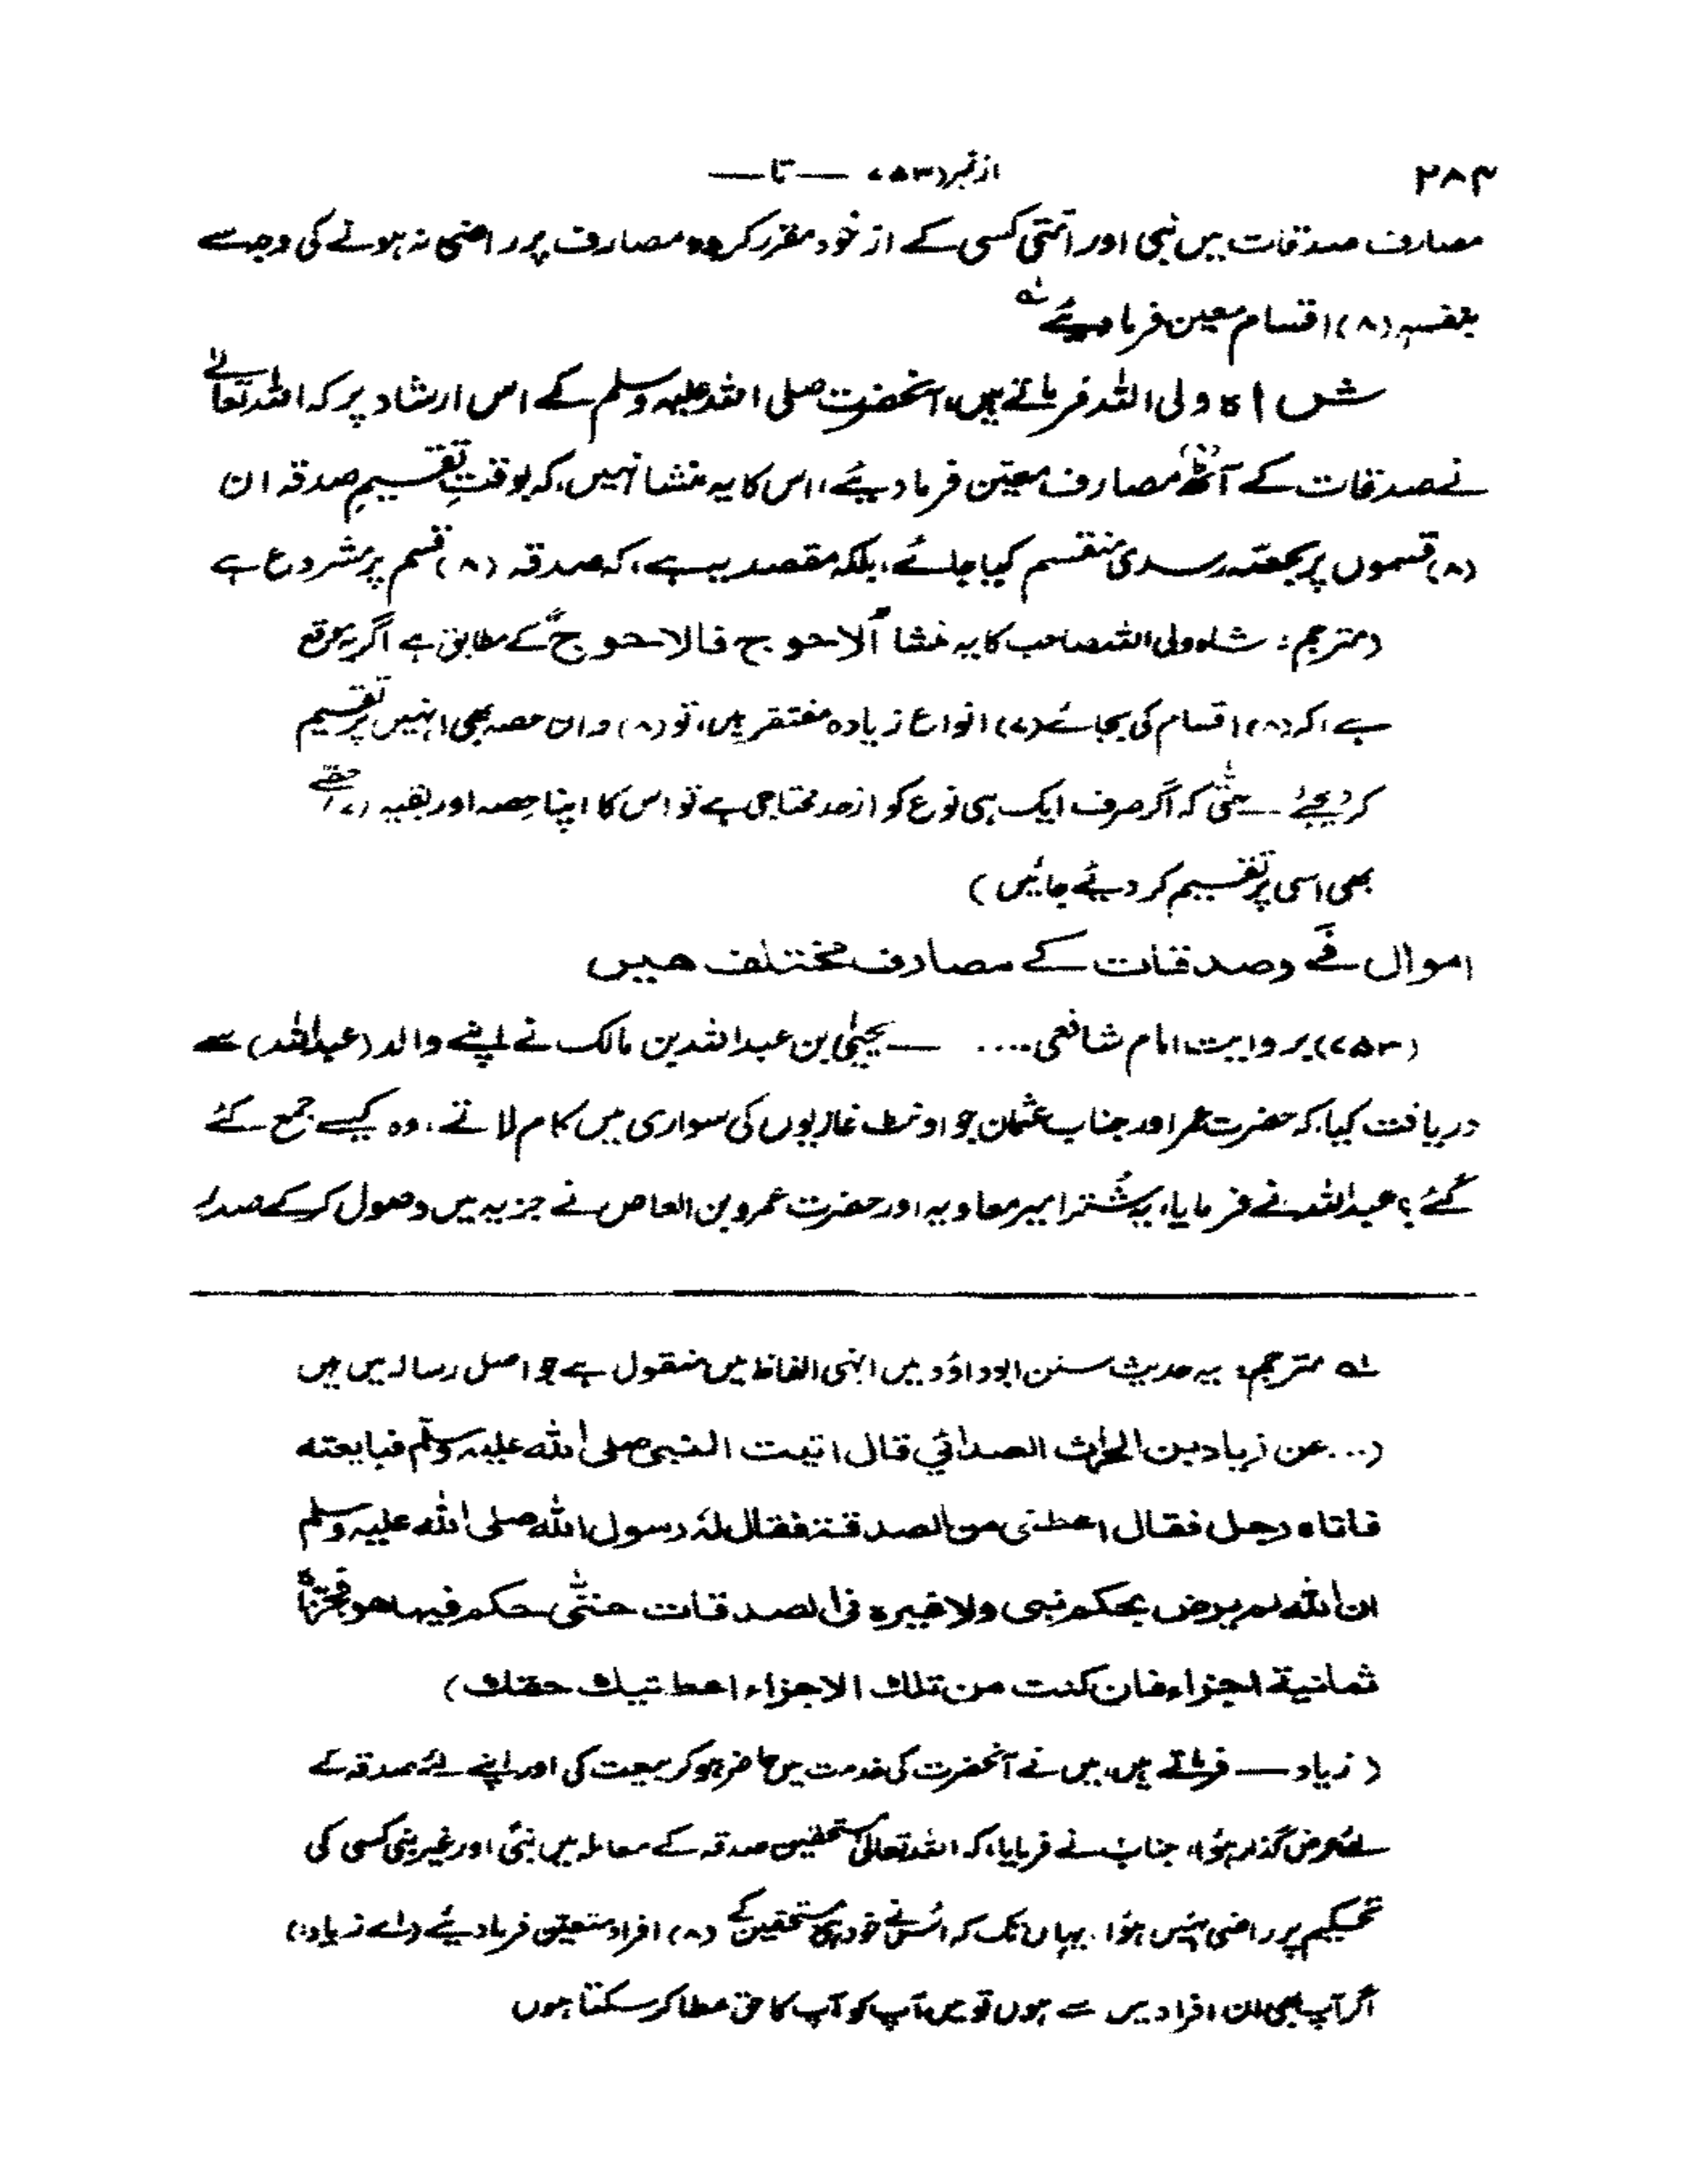 ۲۸۴ از نمبر (۷۵۳ — تا —
مصارف صدقات میں نبی اور اُمتی کسی کے از خود مقرر کردہ مصارف پر راضی نہ ہونے کی وجہ سے
بنفسہٖ (۸) اقسام معین فرما دیئے لہ
شاہ ولی اللہ فرماتے ہیں، آنحضرت صلی اللہ علیہ وسلم کے اس ارشاد پر کہ اللہ تعالےٰ
نے صدقات کے آٹھ مصارف معیّن فرما دیئے، اس کا یہ منشا نہیں، کہ بوقتِ تقسیمِ صدقہ ان
(۸) قسموں پر بحصّہ رسدی منقسم کیا جائے، بلکہ مقصد یہ ہے، کہ صدقہ (۸) قسم پر مشروع ہے
(مترجم: شاہ ولی اللہ صاحب کا یہ منشا اَلاحوج فالاحوج کے مطابق ہے اگر یہ موقع
ہے، کہ (۸) اقسام کی بجائے (۷) انواع زیادہ مفتقر ہیں، تو (۸) واں حصہ بھی انہیں پر تقسیم
کر دیجئے ـ حتّٰی کہ اگر صرف ایک ہی نوع کو ازحد محتاجی ہے تو اس کا اپنا حِصہ اور بقیہ (۷) حصّے
بھی اسی پر تقسیم کر دیئے جائیں)
اموال فَے وصدقات کے مصارف مختلف ھیں
(۷۵۳) بروایت امام شافعی.... — یحییٰ بن عبداللہ بن مالک نے اپنے والد (عبداللہ) سے
دریافت کیا، کہ حضرت عمر اور جناب عثمان جو اونٹ غازیوں کی سواری میں کام لاتے، وہ کیسے جمع کئے
گئے؟ عبداللہ نے فرمایا، یہ شُتر امیر معاویہ اور حضرت عمرو بن العاص نے جزیہ میں وصول کر کے صدر
لہ مترجم: یہ حدیث سنن ابوداؤد میں انہی الفاظ میں منقول ہے جو اصل رسالہ میں ہیں
(...عن زیاد بن الحارث الصدائی قال اتیت النبی صلی اللہ علیہ وسلّم فبایعتہ
فاتاہ رجل فقال اعطنی من الصدقۃ فقال لہٗ رسول اللہ صلی اللہ علیہ وسلم
ان اللہ لم یرض بحکم نبی ولا غیرہ فی الصدقات حتّٰی حکم فیہا ھو فجزّأھا
ثمانیۃ اجزاء فان کنت من تلک الاجزاء اعطیتک حقک)
(زیاد — فرماتے ہیں، میں نے آنحضرت کی خدمت میں حاضر ہو کر بیعت کی اور اپنے لئے صدقہ کے
لئے عرض گذار ہؤا، جناب نے فرمایا، کہ اللہ تعالیٰ مستحقین صدقہ کے معاملہ میں نبی اور غیر نبی کسی کی
تحکیم پر راضی نہیں ہؤا، یہاں تک کہ اُس نے خود ہی مستحقین کے (۸) افراد متعیّن فرما دیئے (اے زیاد!)
اگر آپ بھی ان افراد میں سے ہوں تو میں آپ کو آپ کا حق عطا کر سکتا ہوں